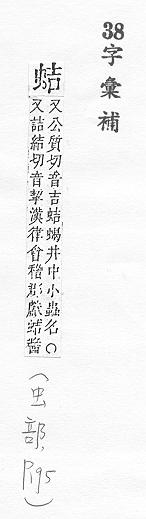 38字彙補
蛣
又公質切音吉蛣蝎井中小蟲名○
又詰結切音挈漢律會稽郡獻蛣醬
(虫部,P.95)